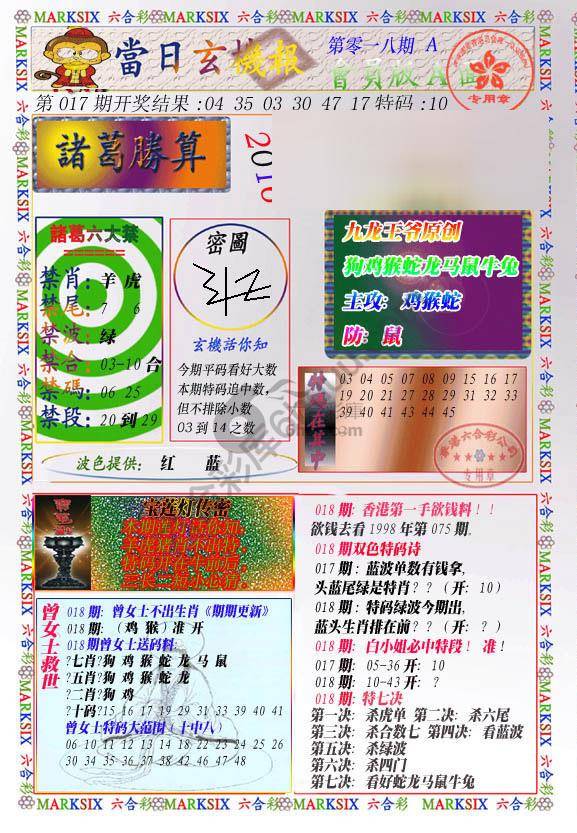 MARKSIX 六合彩 MARKSIX 六合彩 MARKSIX 六合彩 MARKSIX 六合彩
當日玄機报
第零一八期 A
會員版A面
专用章
第017期开奖结果:04 35 03 30 47 17特码:10
諸葛勝算
諸葛六大禁
======
禁肖: 羊 虎
禁尾: 7 6
禁波: 绿
禁合: 03-10 合
禁碼: 06 25
禁段: 20 到 29
密圖
玄機话你知
今期平码看好大数
本期特码追中数,
但不排除小数
03 到 14 之数
波色提供: 红 蓝
九龙王爷原创
狗鸡猴蛇龙马鼠牛兔
主攻: 鸡猴蛇
防: 鼠
特碼在其中
03 04 05 07 08 09 15 16 17
19 20 21 27 28 29 31 32 33
39 40 41 43 44 45
香港六合彩公司
专用章
宝莲灯传密
本期莲灯话你知,
特码开在牛前后,
三长二短小心猜.
曾女士救世
018 期: 曾女士不出生肖《期期更新》
018 期: (鸡 猴) 准 开
018 期曾女士送码料:
?七肖?狗 鸡 猴 蛇 龙 马 鼠
?五肖?狗 鸡 猴 蛇 龙
?二肖?狗 鸡
?十码?15 16 17 19 29 31 33 39 40 41
曾女士特码大范围 (十中八)
06 10 11 12 13 14 18 22 23 24 25 26
30 34 35 36 37 38 42 46 47 48
018 期: 香港第一手欲钱料!!
欲钱去看 1998 年第 075 期.
018 期双色特码诗
017 期: 蓝波单数有钱拿,
头蓝尾绿是特肖?? (开: 10)
018 期: 特码绿波今期出,
蓝头生肖排在前?? (开: ?)
018 期: 白小姐必中特段! 准!
017 期: 05-36 开: 10
018 期: 10-43 开: ?
018 期: 特七决
第一决: 杀虎单 第二决: 杀六尾
第三决: 杀合数七 第四决: 看蓝波
第五决: 杀绿波
第六决: 杀四门
第七决: 看好蛇龙马鼠牛兔
MARKSIX 六合彩 MARKSIX 六合彩 MARKSIX 六合彩 MARKSIX 六合彩